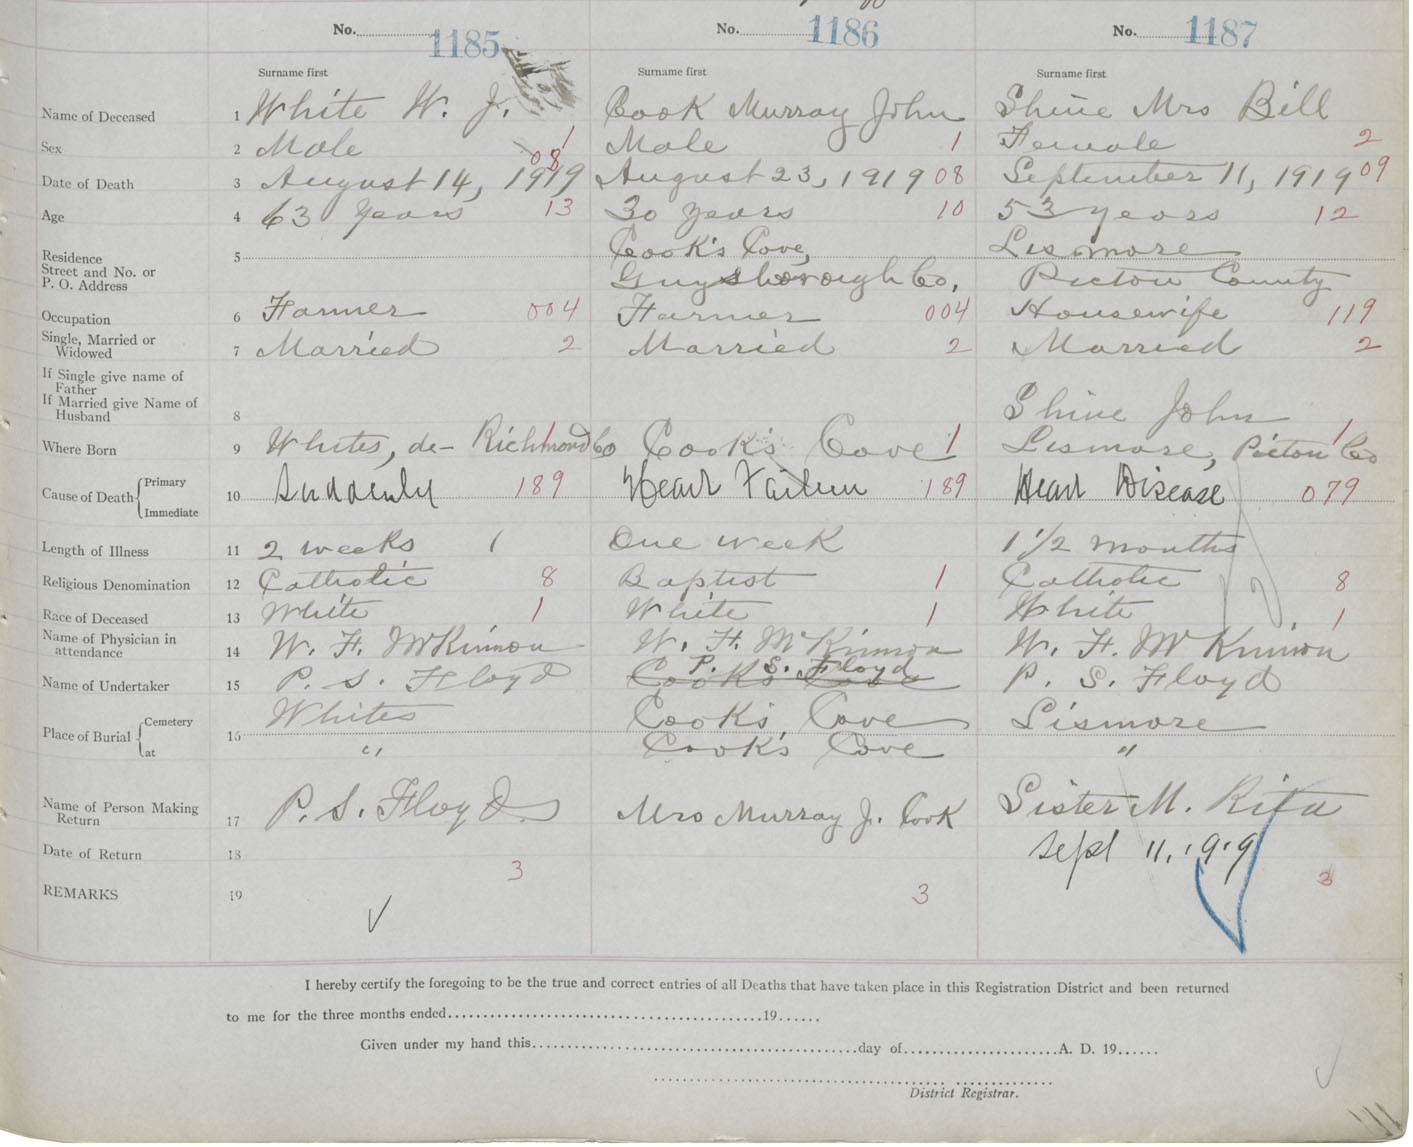 No. 1185 No. 1186 No. 1187
Surname first Surname first Surname first
Name of Deceased 1 White W. J. Cook Murray John Shine Mrs Bill
Sex 2 Male 1 Male 1 Female 2
Date of Death 3 August 14, 1919 08 August 23, 1919 08 September 11, 1919 09
Age 4 63 years 13 30 years 10 53 years 12
Residence 5 Cook's Cove, Lismore
Street and No. or
P. O. Address Guysborough Co. Pictou County
Occupation 6 Farmer 004 Farmer 004 Housewife 119
Single, Married or
Widowed 7 Married 2 Married 2 Married 2
If Single give name of
Father
If Married give Name of
Husband 8 Shine John
Where Born 9 Whites, de- Richmond Co 1 Cook's Cove 1 Lismore, Pictou Co 1
Cause of Death Primary
Immediate 10 Suddenly 189 Heart Failure 189 Heart Disease 079
Length of Illness 11 2 weeks 1 One week 1 1/2 months
Religious Denomination 12 Catholic 8 Baptist 1 Catholic 8
Race of Deceased 13 White 1 White 1 White 1
Name of Physician in
attendance 14 W. F. McKinnon W. F. McKinnon W. F. McKinnon
P. S. Floyd
Name of Undertaker 15 P. S. Floyd Cook's Cove P. S. Floyd
Place of Burial Cemetery 16 Whites Cook's Cove Lismore
at " Cook's Cove "
Name of Person Making
Return 17 P. S. Floyd Mrs Murray J. Cook Sister M. Rita
Date of Return 18 Sept 11, 1919
3 3 3
REMARKS 19
I hereby certify the foregoing to be the true and correct entries of all Deaths that have taken place in this Registration District and been returned
to me for the three months ended........................................19......
Given under my hand this..........................................day of....................A. D. 19......
District Registrar.